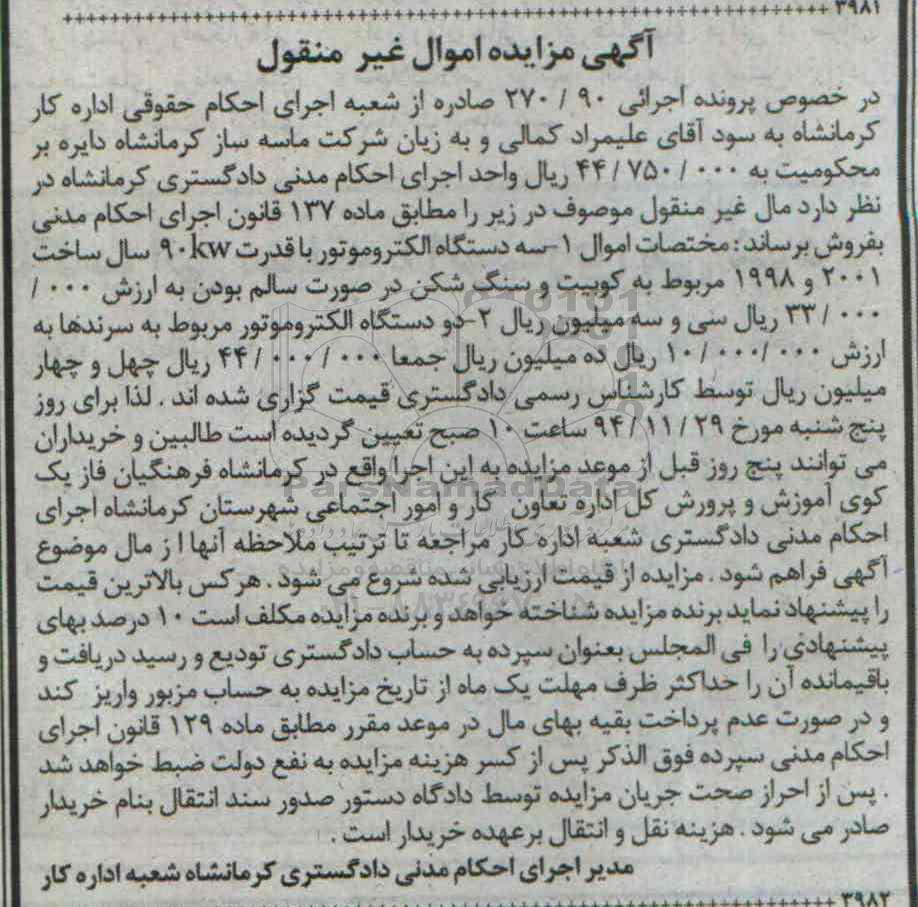 ۳۹۸۱
آگهی مزایده اموال غیر منقول
در خصوص پرونده اجرائی ۹۰ / ۲۷۰ صادره از شعبه اجرای احکام حقوقی اداره کار
کرمانشاه به سود آقای علیمراد کمالی و به زیان شرکت ماسه ساز کرمانشاه دایره بر
محکومیت به ۰۰۰ / ۷۵۰ / ۴۴ ریال واحد اجرای احکام مدنی دادگستری کرمانشاه در
نظر دارد مال غیر منقول موصوف در زیر را مطابق ماده ۱۳۷ قانون اجرای احکام مدنی
بفروش برساند : مختصات اموال ۱-سه دستگاه الکتروموتور با قدرت ۹۰kw سال ساخت
۲۰۰۱ و ۱۹۹۸ مربوط به کوبیت و سنگ شکن در صورت سالم بودن به ارزش ۰۰۰ /
۰۰۰ / ۳۳ ریال سی و سه میلیون ریال ۲-دو دستگاه الکتروموتور مربوط به سرندها به
ارزش ۰۰۰ / ۰۰۰ / ۱۰ ریال ده میلیون ریال جمعا ۰۰۰ / ۰۰۰ / ۴۴ ریال چهل و چهار
میلیون ریال توسط کارشناس رسمی دادگستری قیمت گزاری شده اند . لذا برای روز
پنج شنبه مورخ ۲۹ / ۱۱ / ۹۴ ساعت ۱۰ صبح تعیین گردیده است طالبین و خریداران
می توانند پنج روز قبل از موعد مزایده به این اجرا واقع در کرمانشاه فرهنگیان فاز یک
کوی آموزش و پرورش کل اداره تعاون کار و امور اجتماعی شهرستان کرمانشاه اجرای
احکام مدنی دادگستری شعبه اداره کار مراجعه تا ترتیب ملاحظه آنها ا ز مال موضوع
آگهی فراهم شود . مزایده از قیمت ارزیابی شده شروع می شود . هر کس بالاترین قیمت
را پیشنهاد نماید برنده مزایده شناخته خواهد و برنده مزایده مکلف است ۱۰ درصد بهای
پیشنهادی را فی المجلس بعنوان سپرده به حساب دادگستری تودیع و رسید دریافت و
باقیمانده آن را حداکثر ظرف مهلت یک ماه از تاریخ مزایده به حساب مزبور واریز کند
و در صورت عدم پرداخت بقیه بهای مال در موعد مقرر مطابق ماده ۱۲۹ قانون اجرای
احکام مدنی سپرده فوق الذکر پس از کسر هزینه مزایده به نفع دولت ضبط خواهد شد
. پس از احراز صحت جریان مزایده توسط دادگاه دستور صدور سند انتقال بنام خریدار
صادر می شود . هزینه نقل و انتقال برعهده خریدار است .
مدیر اجرای احکام مدنی دادگستری کرمانشاه شعبه اداره کار
۳۹۸۲
ParsNamadData